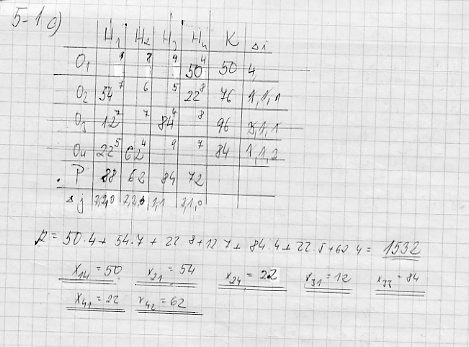 5-1 a)
H1 H2 H3 H4 K Δi
O1 9 8 9 50 4 50 4,
O2 54 7 6 5 22 8 76 1,1,1
O3 12 7 7 84 4 8 96 3,1,1
O4 22 5 62 4 9 7 84 1,1,2
P 88 62 84 72
Δj 2,2,0 2,2, 1,1 3,1,0
R = 50·4 + 54·7 + 22·8 + 12·7 + 84·4 + 22·5 + 62·4 = 1532
x14 = 50 x21 = 54 x24 = 22 x31 = 12 x33 = 84
x41 = 22 x42 = 62